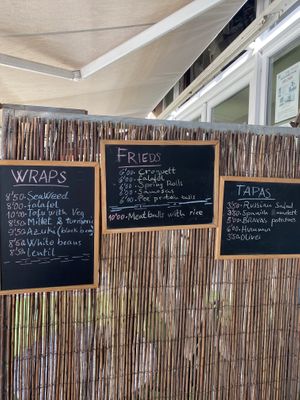 WRAPS
8'50 SeaWeed
8'00 falafel
10'00 Tofu with Veg
8'50 Millet & turmeric
9'50 Azuki (black bean
8'50 White beans
8'50 lentil
FRIEDS
6'00 Croquett
6'00 Falafel
6'30 Spring Rolls
Samosas
6'00 Pee protein balls
10'00 Meatballs with rice
TAPAS
3'50 Russian Salad
3'80 Spanish
8'00 Bravas potatoes
6'00 Hummus
3'50 Olives